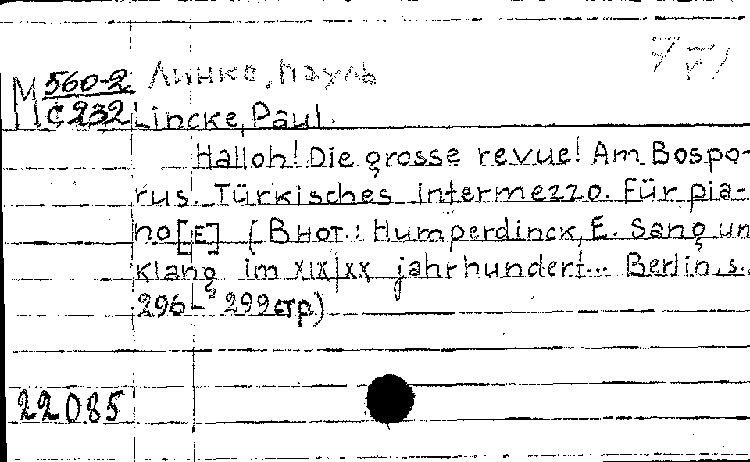 Линке, Пауль
М 560-2
С 232
Lincke, Paul.
Halloh! Die grosse revue! Am Bospo-
rus. Türkisches intermezzo. Für pia-
no [E] (В нот.: Humperdinck, E. Sang un
klang im XIX/XX jahrhundert... Berlin, s.
296-299 стр)
22085